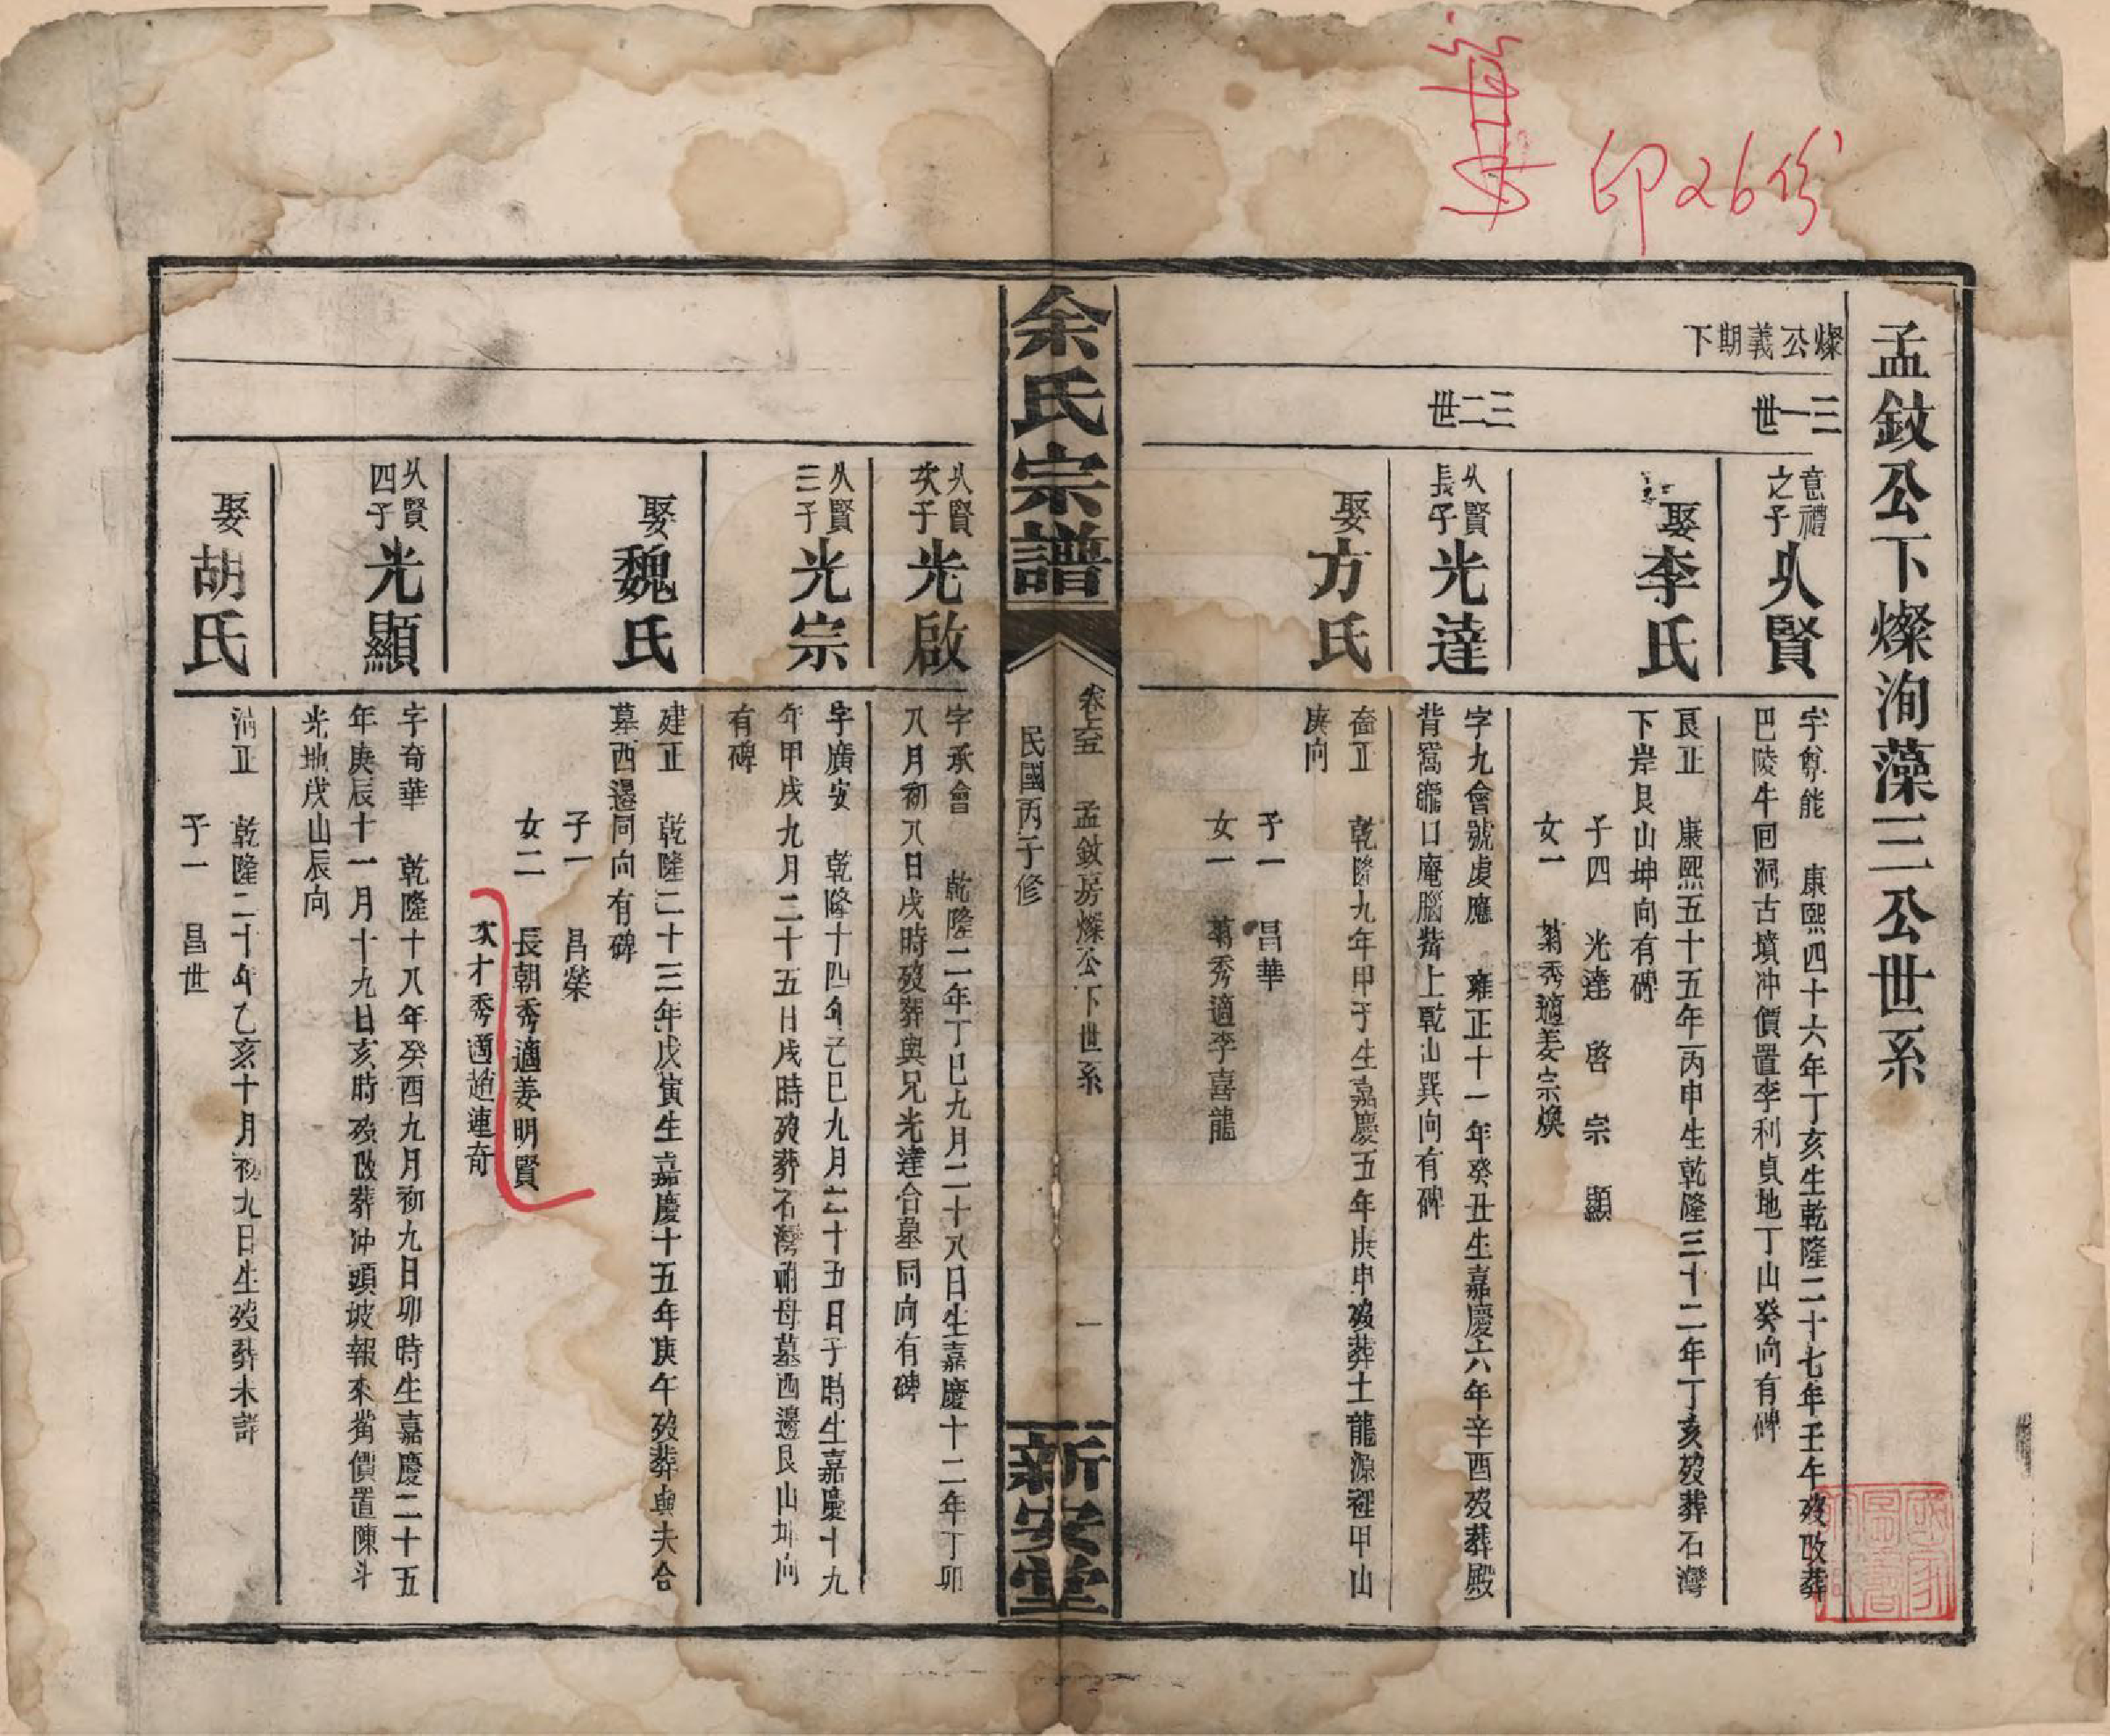 印26份
孟鈫公下燦洵藻三公世系
燦公義期下
三一世
意禮之子 久賢
字尊能 康熙四十六年丁亥生乾隆二十七年壬午歿改葬
巴陵牛回洞古墳冲價置李利貞地丁山癸向有碑
娶李氏
艮正 康熙五十五年丙申生乾隆三十二年丁亥歿葬石灣
下岸艮山坤向有碑
子四 光達 啓 宗 顯
女一 菊秀適姜宗煥
三二世
久賢長子 光達
字九會號虔應 雍正十一年癸丑生嘉慶六年辛酉歿葬殿
背窩龍口庵腦嘴上乾山巽向有碑
娶方氏
正 乾隆九年甲子生嘉慶五年庚申歿葬土龍源裡甲山
庚向
子一 昌華
女一 菊秀適李喜龍
余氏宗譜
卷之五 孟鈫房燦公下世系 一
民國丙子修
新安堂
久賢次子 光啟
字承會 乾隆二年丁巳九月二十八日生嘉慶十二年丁卯
八月初八日戌時歿葬與兄光達合墓同向有碑
久賢三子 光宗
字廣安 乾隆十四年己巳九月二十五日子時生嘉慶十九
年甲戌九月二十五日戌時歿葬石灣祔母墓西邊艮山坤向
有碑
娶魏氏
建正 乾隆二十三年戊寅生嘉慶十五年庚午歿葬與夫合
墓西邊同向有碑
子一 昌榮
女二 長朝秀適姜明賢
次才秀適趙連奇
久賢四子 光顯
字奇華 乾隆十八年癸酉九月初九日卯時生嘉慶二十五
年庚辰十一月十九日亥時歿改葬冲頭坡報來嘴價置陳斗
光地戌山辰向
娶胡氏
滿正 乾隆二十年乙亥十月初九日生歿葬未詳
子一 昌世